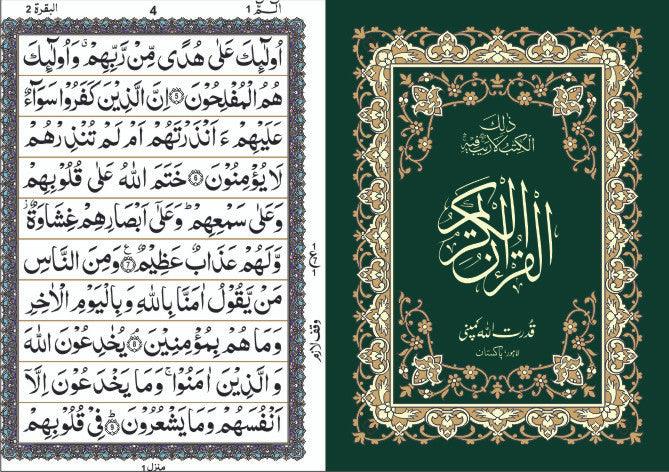 البقرة 2
4
الٓمّٓ 1
اُولٰٓئِكَ عَلٰى هُدًى مِّنْ رَّبِّهِمْ ۙ وَاُولٰٓئِكَ
هُمُ الْمُفْلِحُوْنَ ۝5 اِنَّ الَّذِيْنَ كَفَرُوْا سَوَآءٌ
عَلَيْهِمْ ءَاَنْذَرْتَهُمْ اَمْ لَمْ تُنْذِرْهُمْ
لَا يُؤْمِنُوْنَ ۝6 خَتَمَ اللّٰهُ عَلٰى قُلُوْبِهِمْ
وَعَلٰى سَمْعِهِمْ ؕ وَعَلٰٓى اَبْصَارِهِمْ غِشَاوَةٌ ۡ
وَّلَهُمْ عَذَابٌ عَظِيْمٌ ۝7 وَمِنَ النَّاسِ
مَنْ يَّقُوْلُ اٰمَنَّا بِاللّٰهِ وَبِالْيَوْمِ الْاٰخِرِ
وَمَا هُمْ بِمُؤْمِنِيْنَ ۝8 يُخٰدِعُوْنَ اللّٰهَ
وَالَّذِيْنَ اٰمَنُوْا ۚ وَمَا يَخْدَعُوْنَ اِلَّآ
اَنْفُسَهُمْ وَمَا يَشْعُرُوْنَ ۝9 فِيْ قُلُوْبِهِمْ
وقف لازم
منزل 1
ذٰلِكَ
الْكِتٰبُ لَا رَيْبَ فِيْهِ
القرآن الكريم
قدرت اللہ کمپنی
لاہور پاکستان